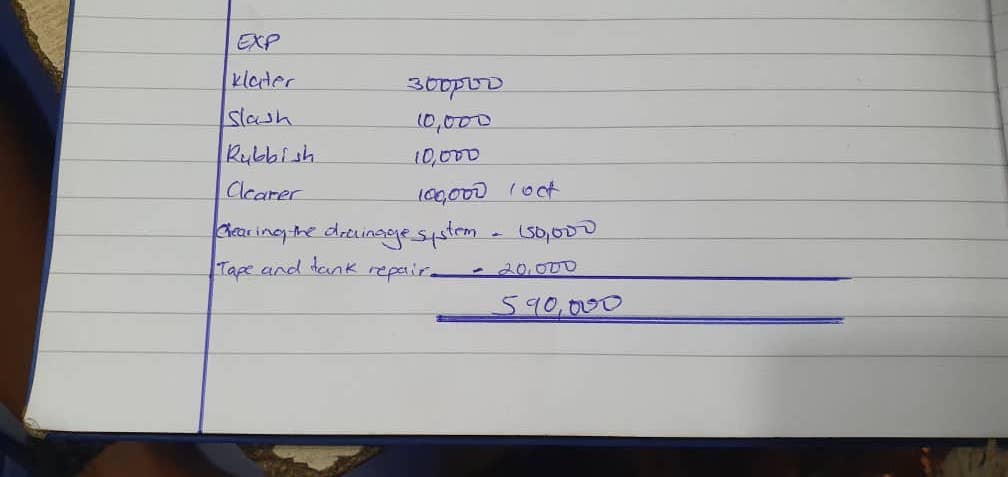 EXP
Water 300,000
Slash 10,000
Rubbish 10,000
Cleaner 100,000 1 oct
Clearing the drainage system - 150,000
Tape and tank repair - 20,000
590,000